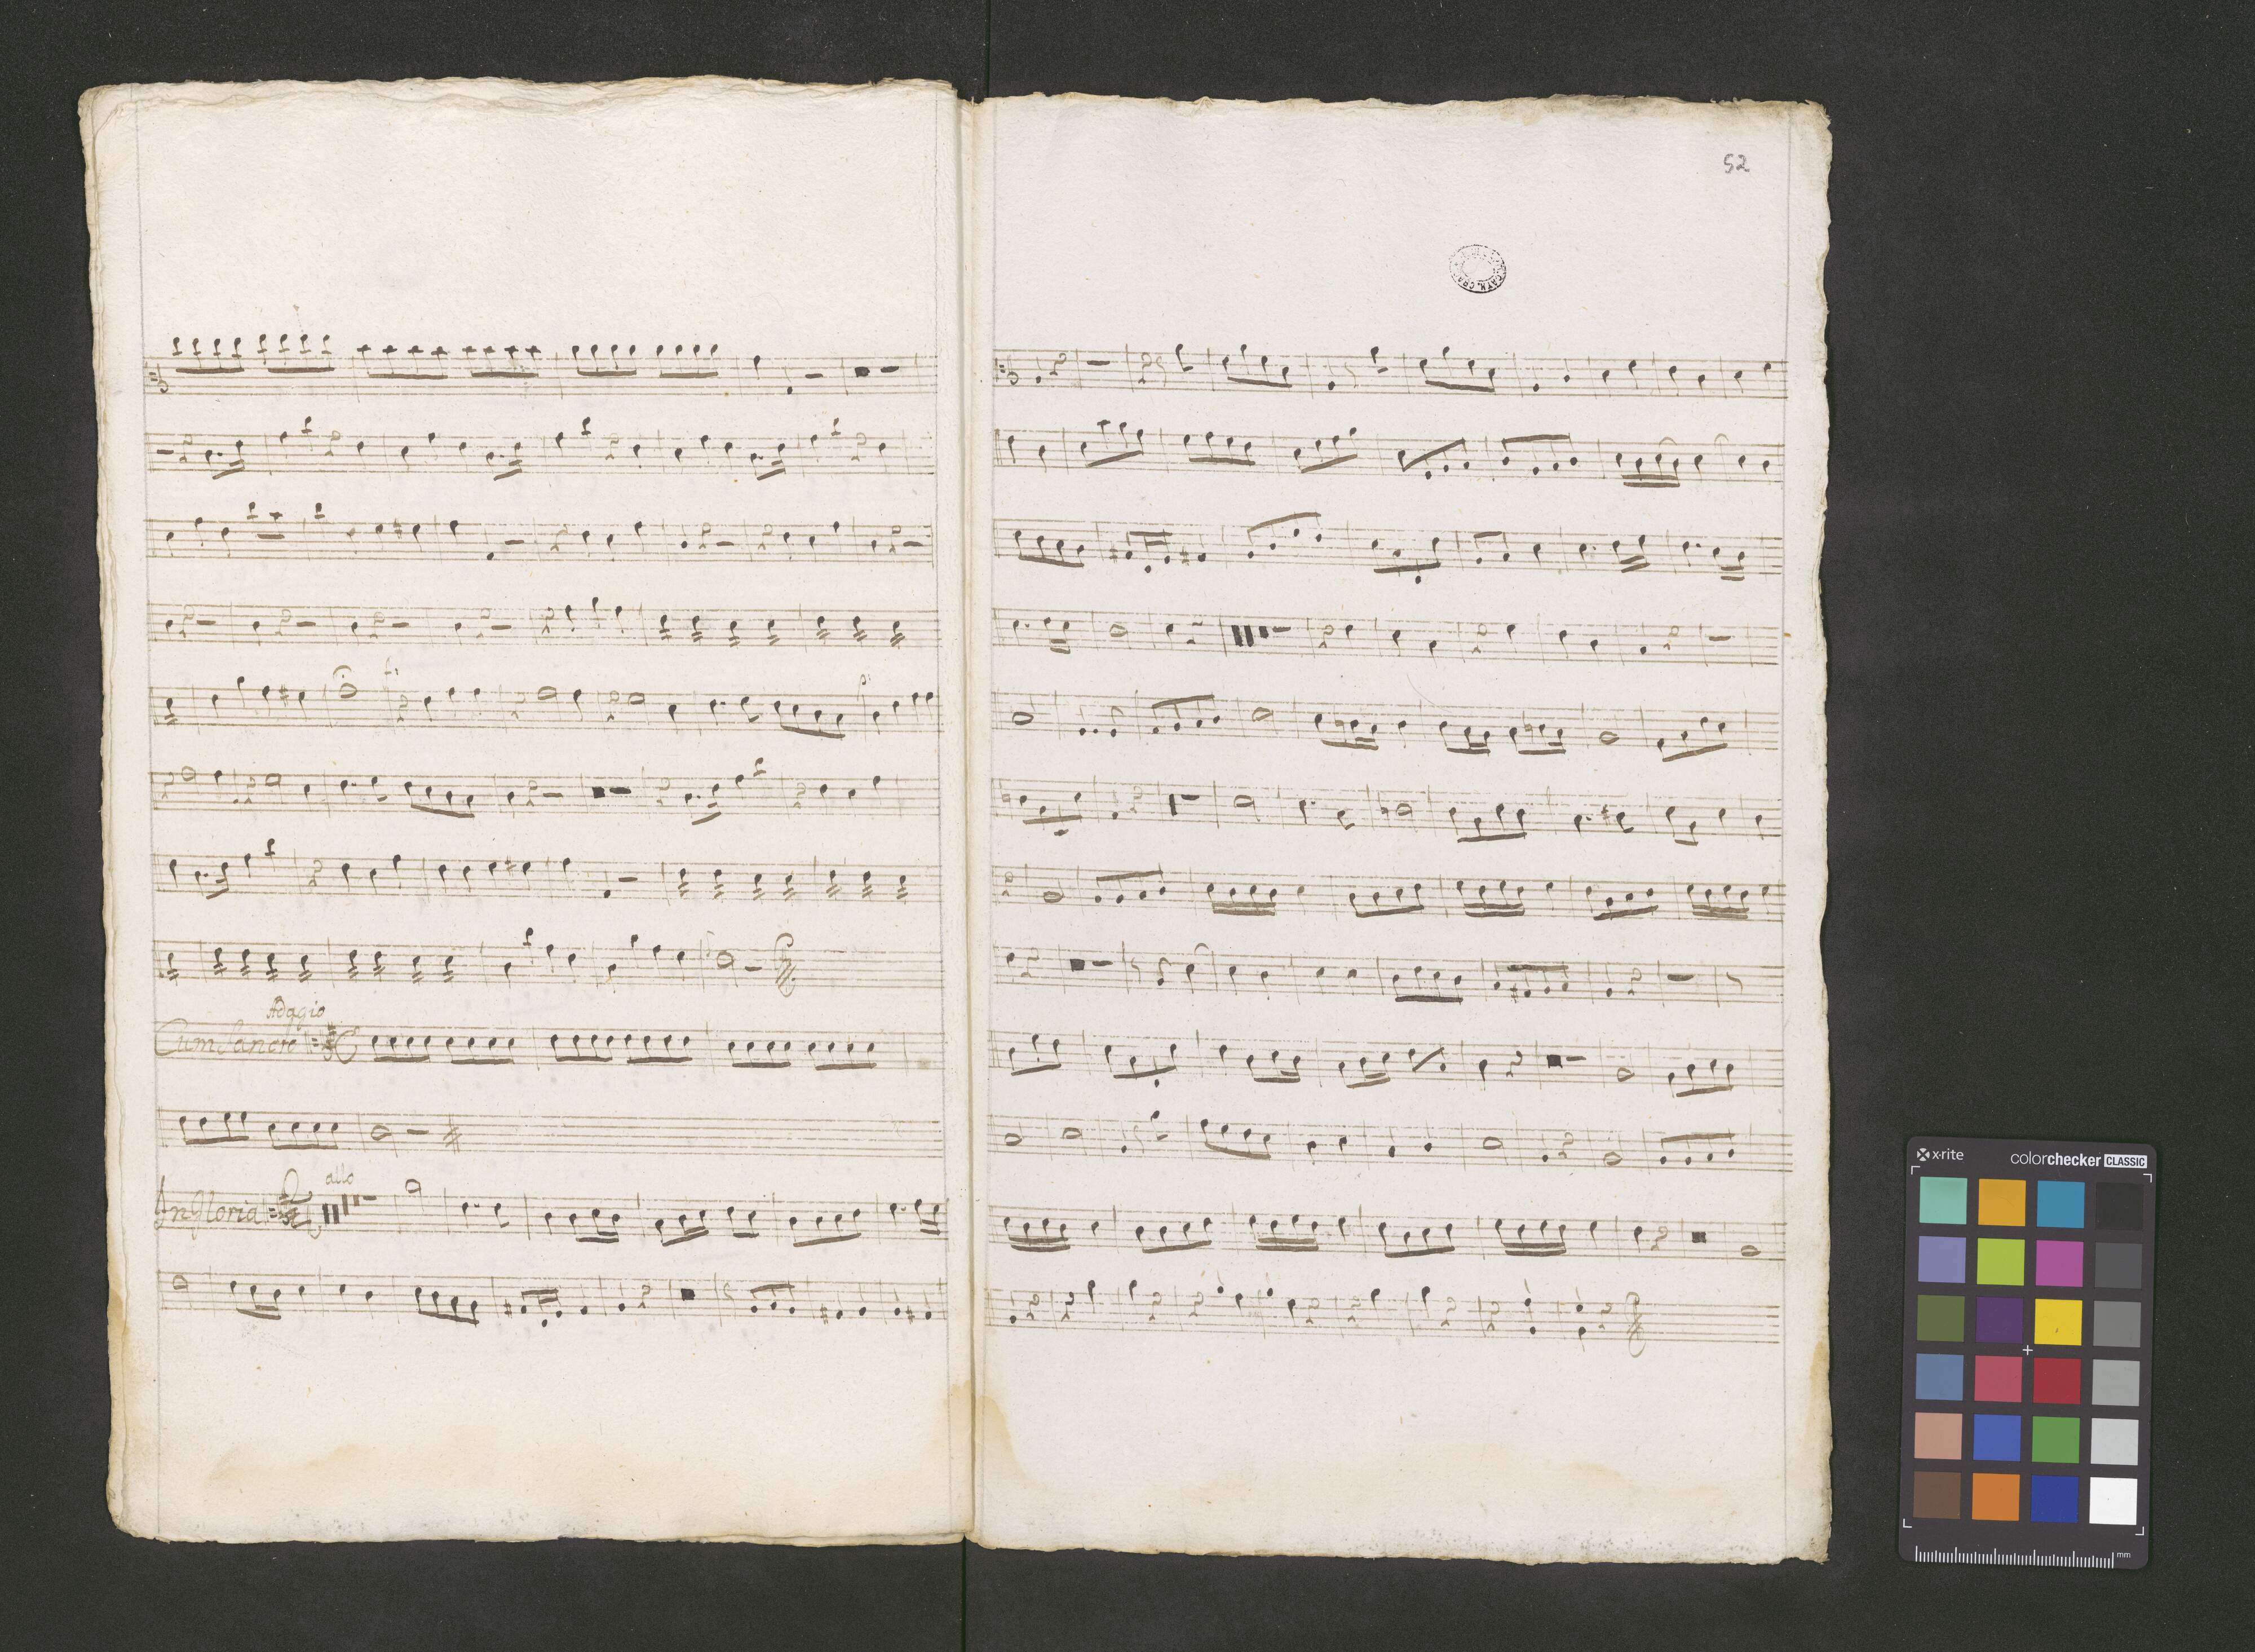 f:
p:
Adagio
Cum Sancto
allo
In Gloria
52
x-rite
colorchecker CLASSIC
mm